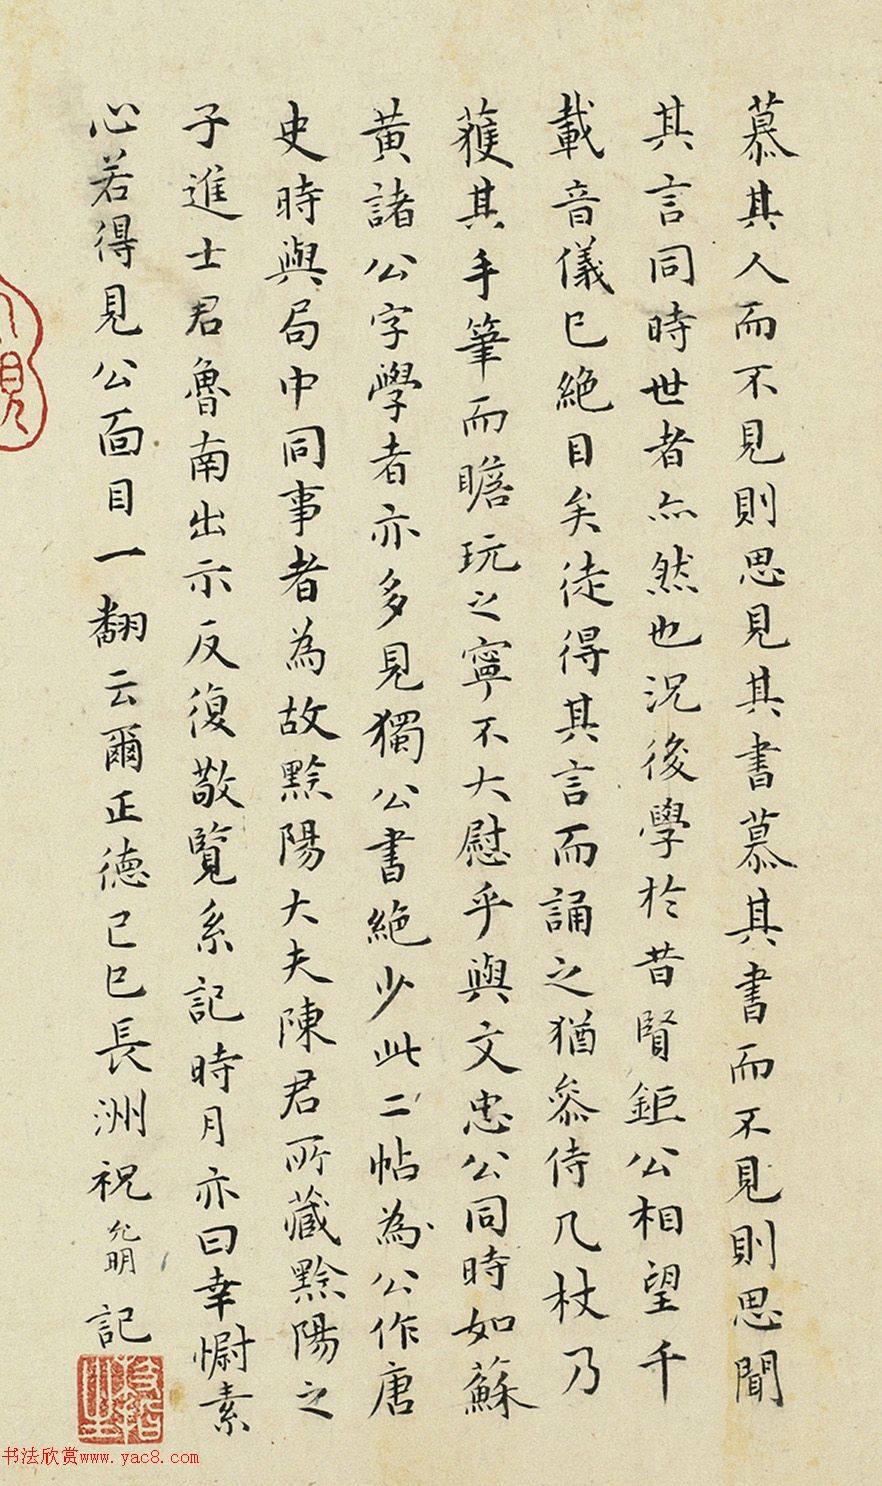 慕其人而不見則思見其書慕其書而不見則思聞
其言同時世者亦然也況後學於昔賢鉅公相望千
載音儀已絶目矣徒得其言而誦之猶叅侍几杖乃
獲其手筆而瞻玩之寧不大慰乎與文忠公同時如蘇
黃諸公字學者亦多見獨公書絶少此二帖為公作唐
史時與局中同事者為故黟陽大夫陳君所藏黟陽之
子進士君魯南出示反復敬覽系記時月亦曰幸慰素
心若得見公面目一翻云爾正德己巳長洲祝允明記
书法欣赏www.yac8.com